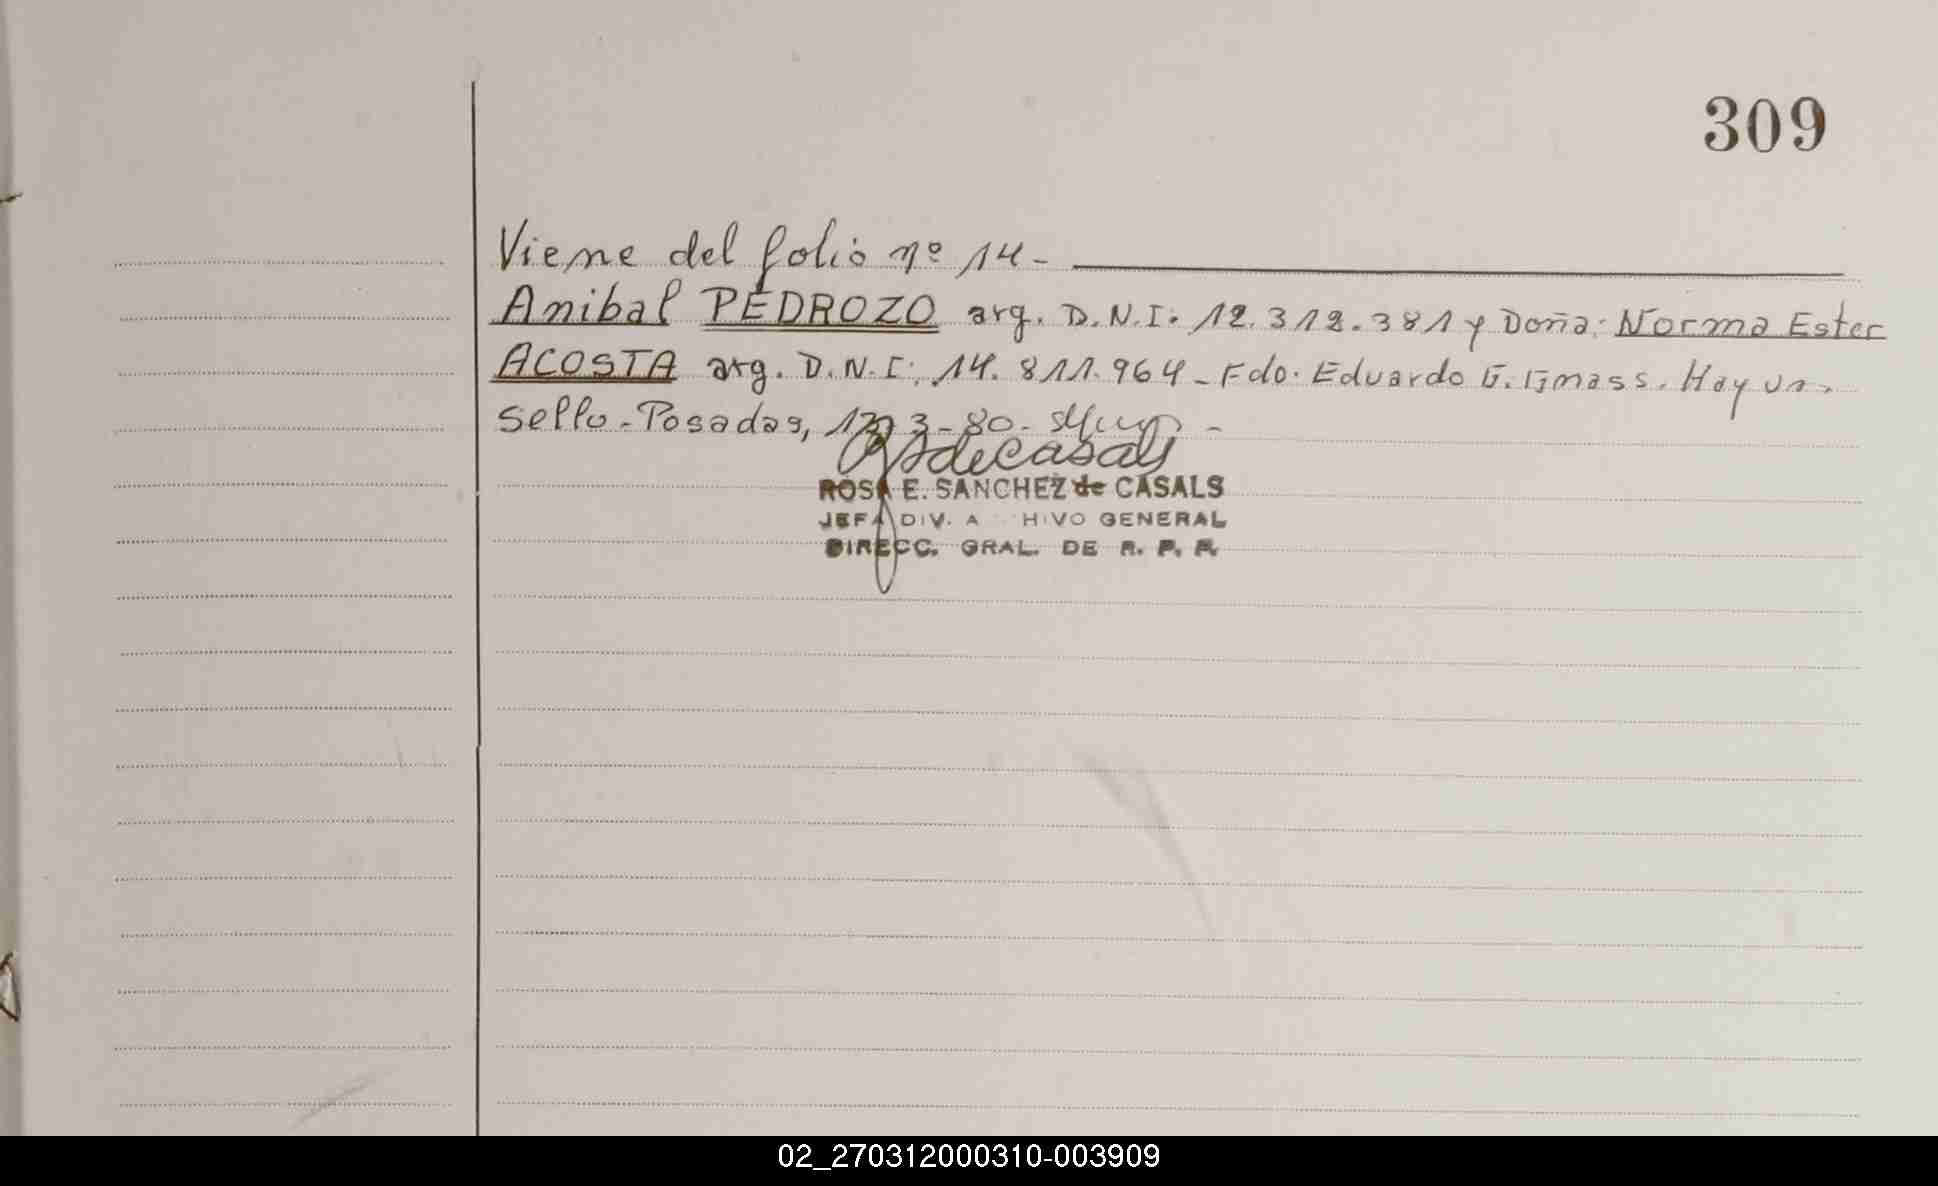 309
Viene del folio nº 14-
Anibal PEDROZO arg. D.N.I. 12.312.381 y Doña: Norma Ester
ACOSTA arg. D.N.I. 14.811.964 - Fdo. Eduardo Hay un
sello - Posadas, 3-80.
ROSA E. SANCHEZ de CASALS
JEFA DIV. A HIVO GENERAL
DIRECC. GRAL. DE R. P. P.
02_270312000310-003909